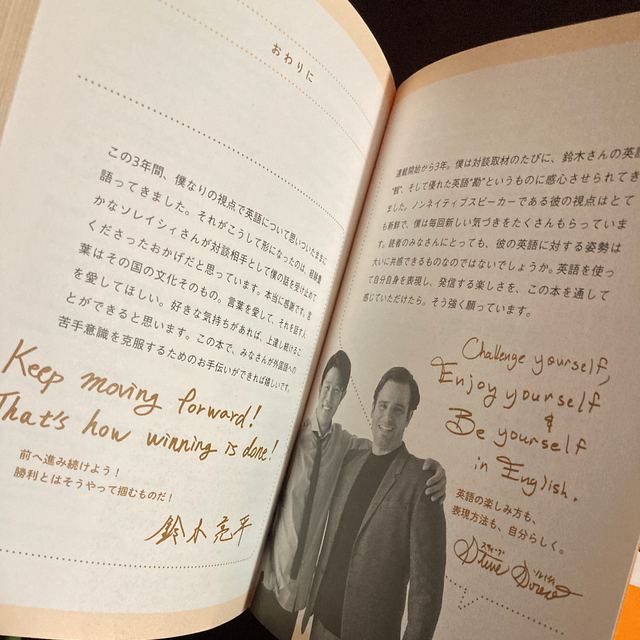 おわりに
この3年間、僕なりの視点で英語について思いついたままに
語ってきました。それがこうして形になったのは、経験豊
かなソレイシィさんが対談相手として僕の話を受け止めて
くださったおかげだと思っています。本当に感謝です。言
葉はその国の文化そのもの。言葉を愛して、それを話す人
を愛してほしい。好きな気持ちがあれば、上達し続けるこ
とができると思います。この本で、みなさんが外国語への
苦手意識を克服するためのお手伝いができれば嬉しいです。
Keep moving forward!
That's how winning is done!
前へ進み続けよう!
勝利とはそうやって掴むものだ!
鈴木亮平
連載開始から3年。僕は対談取材のたびに、鈴木さんの英語
そして優れた英語“勘”というものに感心させられてき
ました。ノンネイティブスピーカーである彼の視点はとて
も新鮮で、僕は毎回新しい気づきをたくさんもらっていま
す。読者のみなさんにとっても、彼の英語に対する姿勢は
大いに共感できるものなのではないでしょうか。英語を使っ
て自分自身を表現し、発信する楽しさを、この本を通して
感じていただけたら。そう強く願っています。
Challenge yourself,
Enjoy yourself
&
Be yourself
in English.
英語の楽しみ方も、
表現方法も、自分らしく。
スティーブ ソレイシィ
Steve Soresi